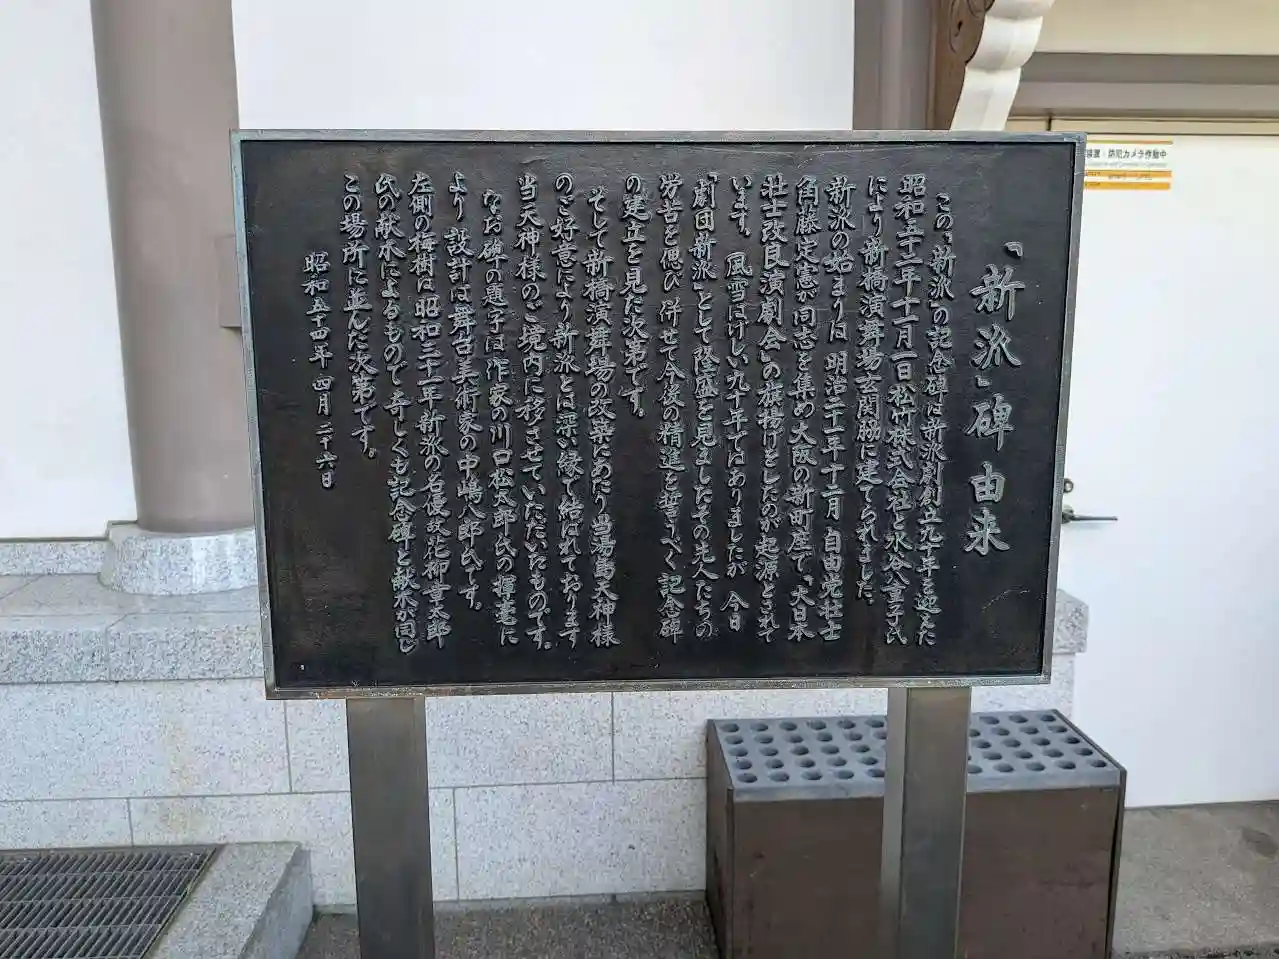 「新派」碑 由来
この「新派」の記念碑は新派創立九十年を迎えた
昭和五十二年十一月一日松竹株式会社と水谷八重子氏
により新橋演舞場玄関脇に建てられました。
新派の始まりは 明治二十一年十二月 自由党壮士
角藤定憲が同志を集め大阪の新町座で、大日本
壮士改良演劇会」の旗揚げをしたのが起源とされて
います。風雪はげしい九十年ではありましたが 今日
「劇団新派」として隆盛を見ましたその先人たちの
労苦を偲び 併せて今後の精進を誓うべく 記念碑
の建立を見た次第です。
そして新橋演舞場の改築にあたり当湯島天神様
のご好意により新派とは深い縁で結ばれております
当天神様のご境内に移させていただいたものです。
なお碑の題字は作家の川口松太郎氏の揮毫に
より 設計は舞台美術家の中嶋八郎氏です。
左側の梅樹は昭和三十一年新派の名優故花柳章太郎
氏の献木によるもので奇しくも記念碑と献木が同じ
この場所に並んだ次第です。
昭和五十四年 四月 二十六日
防犯カメラ作動中